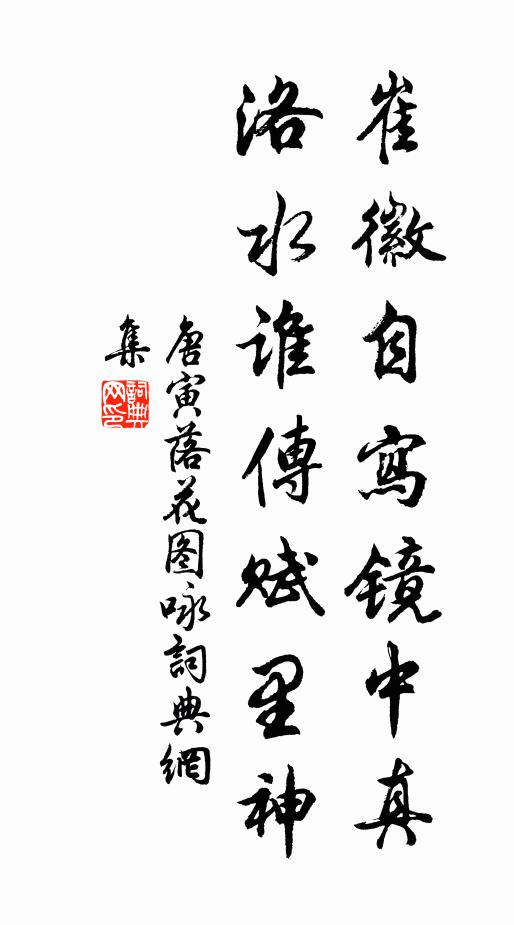 崔徽自寫镜中真
洛水谁傳赋里神
唐寅落花图咏詞典網
集
詞典
网印